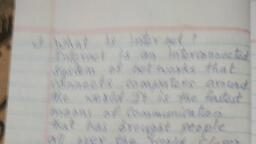 What is internet?
Internet is an interconnected
system of networks that
connects computers around
the world. It is the fastest
means of communication
that has brought people
all over the world closer